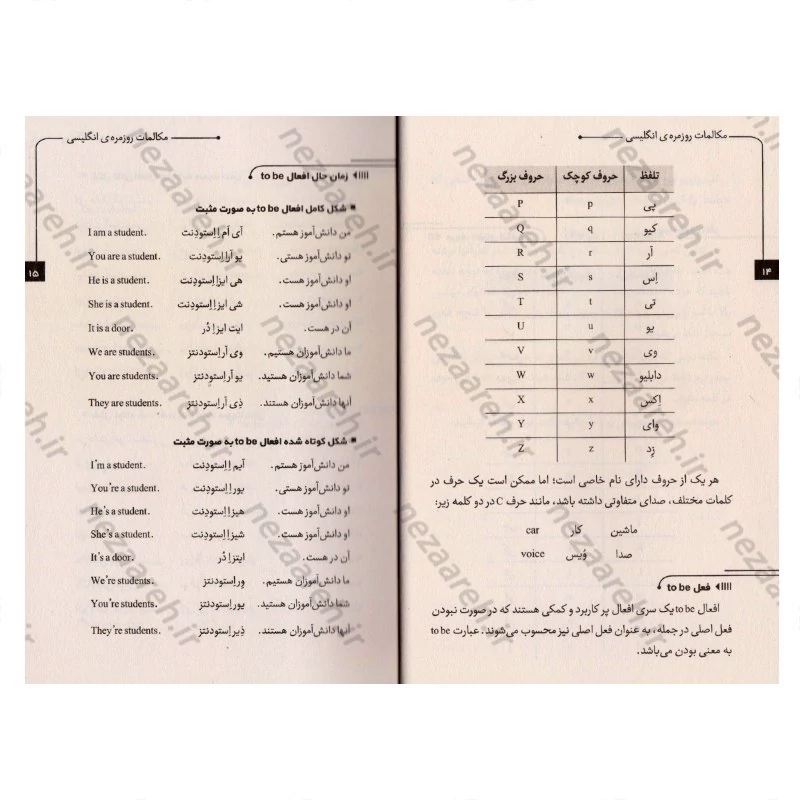 مکالمات روزمره‌ی انگلیسی
۱۴
تلفظ حروف کوچک حروف بزرگ
پی p P
کیو q Q
آر r R
اِس s S
تی t T
یو u U
وی v V
دابلیو w W
اِکس x X
وای y Y
زِد z Z
هر یک از حروف دارای نام خاصی است؛ اما ممکن است یک حرف در
کلمات مختلف، صدای متفاوتی داشته باشد، مانند حرف C در دو کلمه زیر:
ماشین کار car
صدا وُیس voice
فعل to be
افعال to be یک سری افعال پر کاربرد و کمکی هستند که در صورت نبودن
فعل اصلی در جمله، به عنوان فعل اصلی نیز محسوب می‌شوند. عبارت to be
به معنی بودن می‌باشد.
مکالمات روزمره‌ی انگلیسی
۱۵
زمان حال افعال to be
شکل کامل افعال to be به صورت مثبت
من دانش‌آموز هستم. آی اَم اِ اِستودِنت I am a student.
تو دانش‌آموز هستی. یو آر اِ اِستودِنت You are a student.
او دانش‌آموز هست. هی ایز اِ اِستودِنت He is a student.
او دانش‌آموز هست. شی ایز اِ اِستودِنت She is a student.
آن در هست. ایت ایز اِ دُر It is a door.
ما دانش‌آموزان هستیم. وی آر اِستودنتز We are students.
شما دانش‌آموزان هستید. یو آر اِستودنتز You are students.
آنها دانش‌آموزان هستند. ذِی آر اِستودنتز They are students.
شکل کوتاه شده افعال to be به صورت مثبت
من دانش‌آموز هستم. آیم اِ اِستودِنت I'm a student.
تو دانش‌آموز هستی. یور اِ اِستودِنت You're a student.
او دانش‌آموز هست. هیز اِ اِستودِنت He's a student.
او دانش‌آموز هست. شیز اِ اِستودِنت She's a student.
آن در هست. ایتز اِ دُر It's a door.
ما دانش‌آموزان هستیم. وِر اِستودنتز We're students.
شما دانش‌آموزان هستید. یور اِستودنتز You're students.
آنها دانش‌آموزان هستند. ذِیر اِستودنتز They're students.
nezaareh.ir